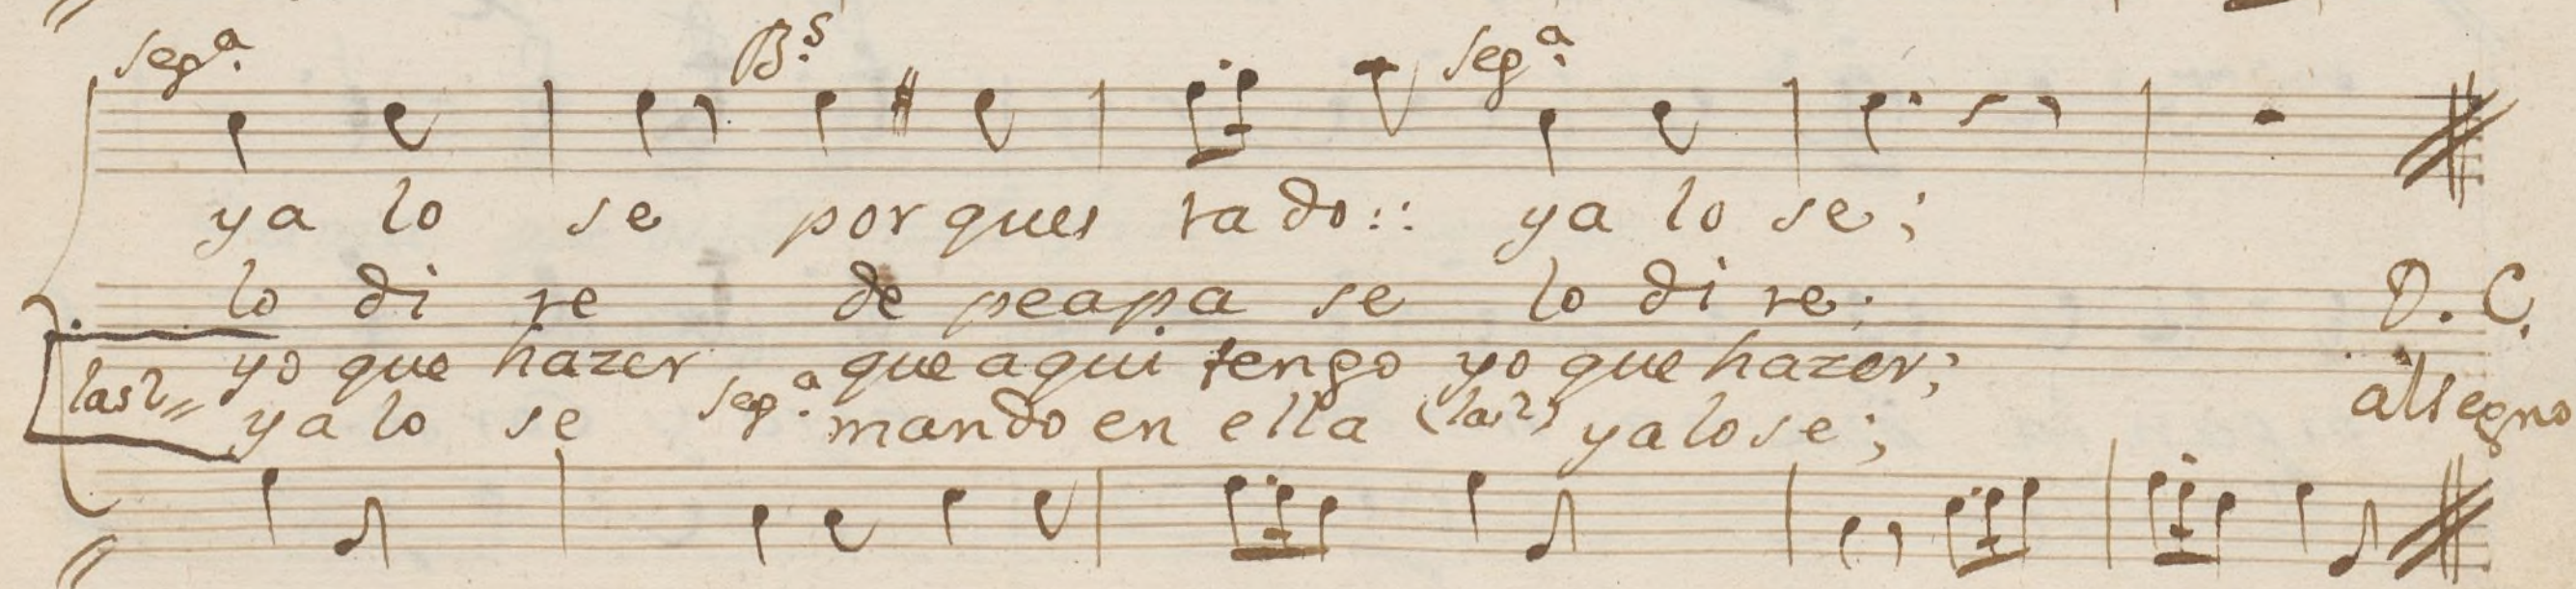 segª. B.s segª.
ya lo se por ques ta do:: ya lo se;
lo di re de peapa se lo di re; D. C.
yo que hazer que aqui tengo yo que hazer; allsegno
las2= ya lo se segª. mando en ella (las2) ya lo se;